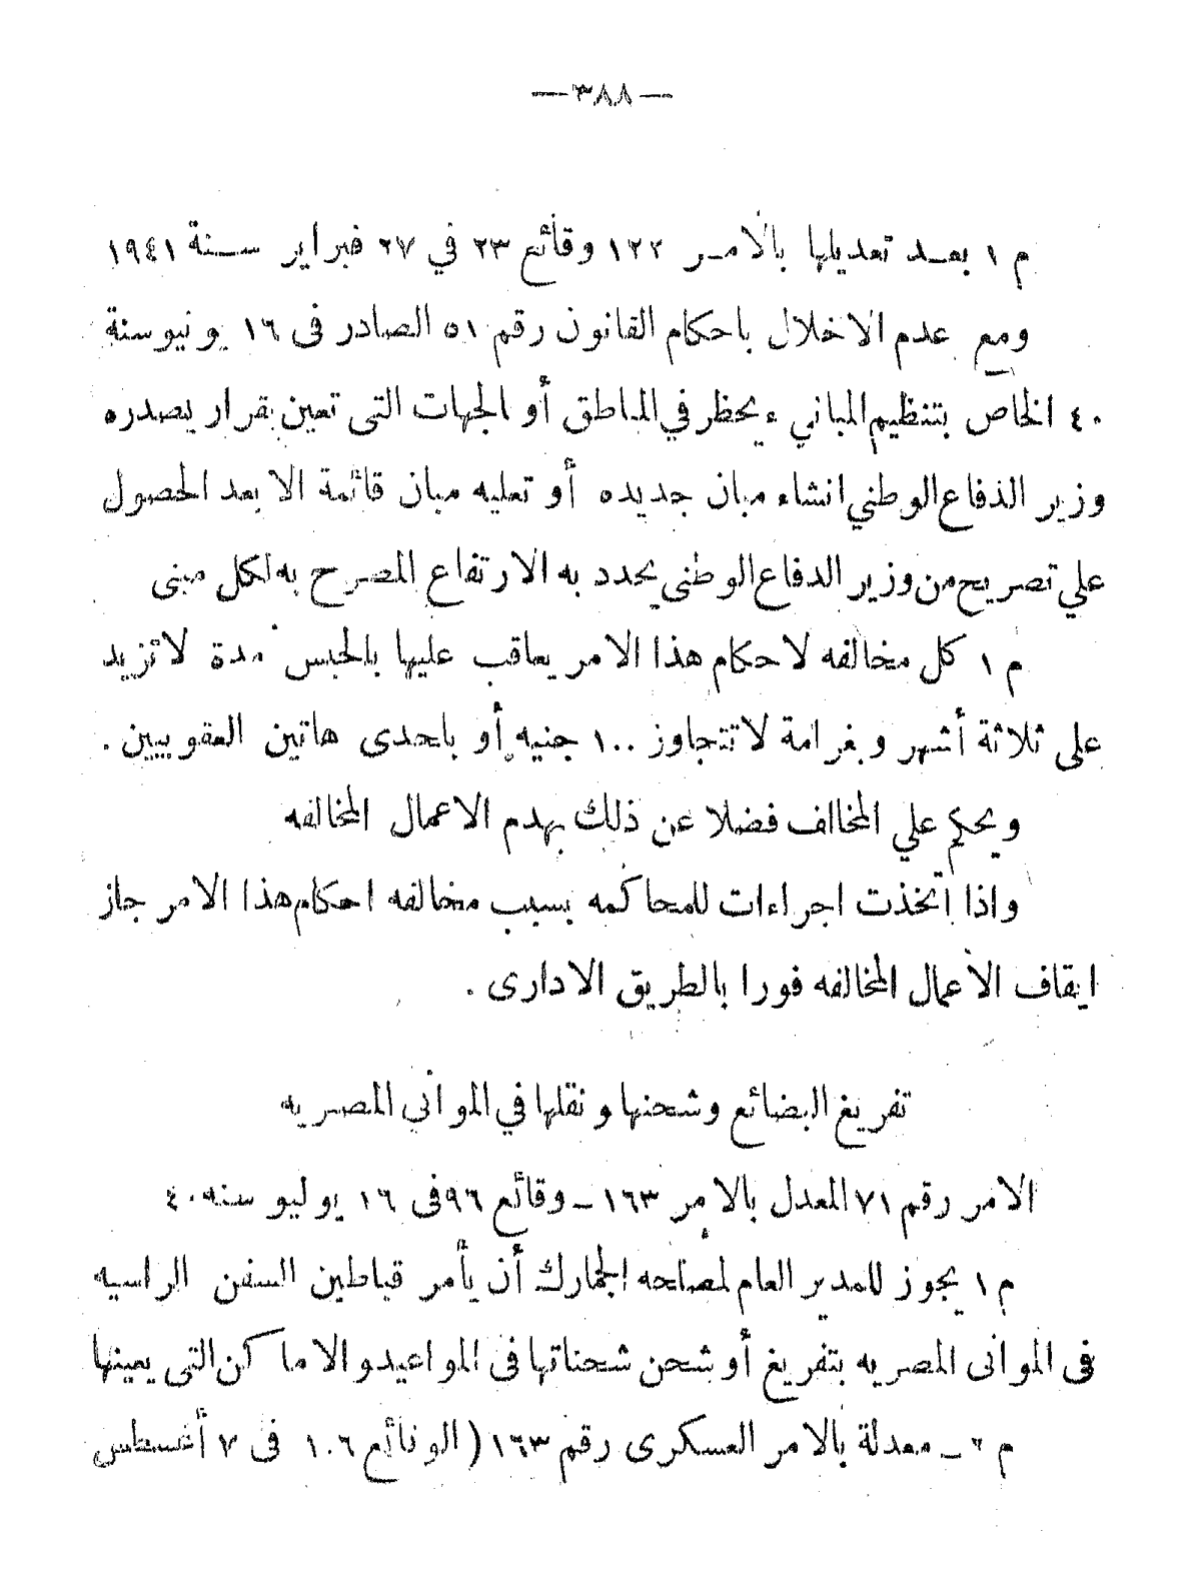 —٣٨٨—
م ١ بعد تعديلها بالامر ١٢٢ وقائع ٢٣ في ٢٧ فبراير سنة ١٩٤١
ومع عدم الاخلال باحكام القانون رقم ٥١ الصادر فى ١٦ يونيو سنة
٤٠ الخاص بتنظيم المباني ء يحظر في المناطق أو الجهات التى تعين بقرار يصدره
وزير الدفاع الوطني انشاء مبان جديده أو تعليه مبان قائمة الا بعد الحصول
علي تصريح من وزير الدفاع الوطنى يحدد به الارتفاع المصرح به لكل مبنى
م ١ كل مخالفه لاحكام هذا الامر يعاقب عليها بالحبس مدة لا تزيد
على ثلاثة أشهر وبغرامة لا تتجاوز ١٠٠ جنيه أو باحدى هاتين العقوبيين .
ويحكم علي المخالف فضلا عن ذلك بهدم الاعمال المخالفه
واذا اتخذت اجراءات للمحاكمه بسبب مخالفه احكام هذا الامر جاز
ايقاف الأعمال المخالفه فورا بالطريق الادارى .
تفريغ البضائع وشحنها ونقلها في الموانى المصريه
الامر رقم ٧١ المعدل بالامر ١٦٣ – وقائع ٩٦ فى ١٦ يوليو سنه ٤٠
م ١ يجوز للمدير العام لمصلحه الجمارك أن يأمر قباطين السفن الراسيه
فى الموانى المصريه بتفريغ أو شحن شحناتها فى المواعيد والاماكن التى يعينها
م ٢ – معدلة بالامر العسكرى رقم ١٦٣ ( الوقائع ١٠٦ فى ٧ أغسطس